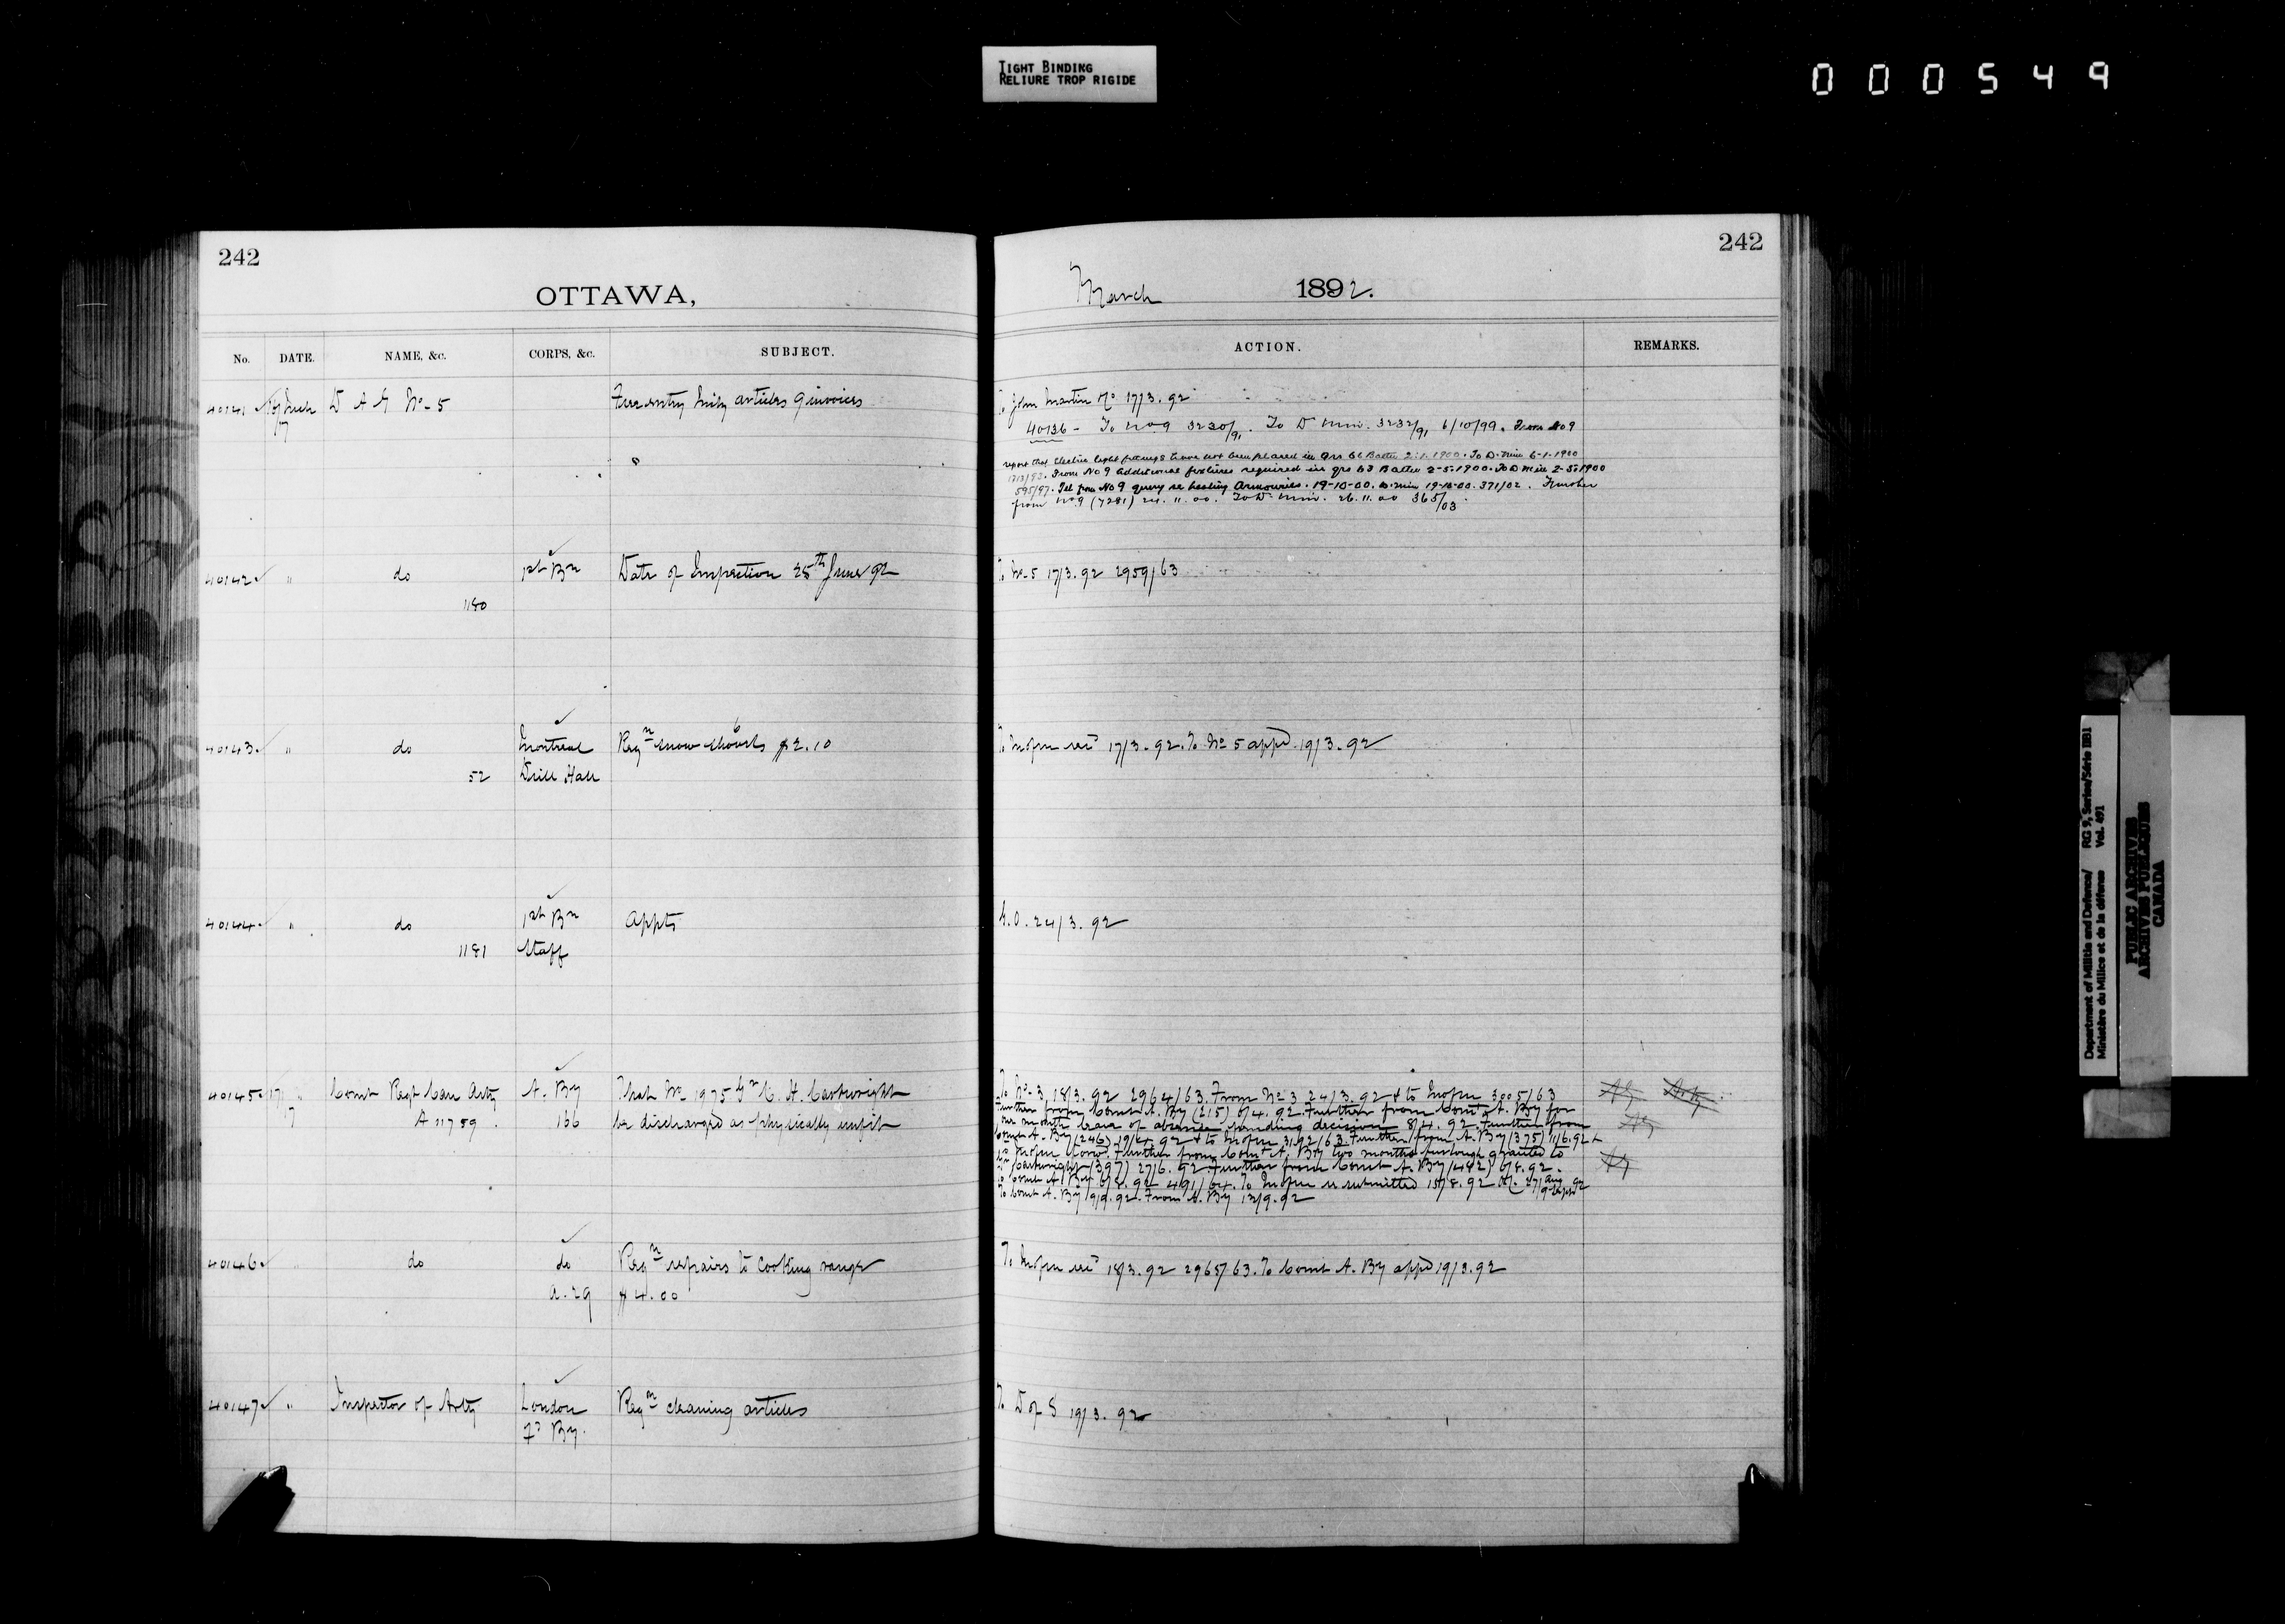 TIGHT BINDING
RELIURE TROP RIGIDE
000549
242
OTTAWA,
No. DATE. NAME, &c. CORPS, &c. SUBJECT.
40141 17 D A G No. 5 Free entry articles 9 invoices
40142 " do 1st Bn Date of Inspection 25th June 92
1180
40143 " do Montreal Reqn 6 snow shovels $2.10
52 Drill Hall
40144 " do 1st Bn appts
1181 Staff
40145 17 " Comt Regt Can Arty A. By That No 1975 Gr C. H. Cartwright
A 11759 . 166 be discharged as physically unfit
40146 " do do Reqn repairs to cooking range
a. 29 $4.00
40147 " Inspector of Arty London Reqn cleaning articles
Fd By.
242
March 1892.
ACTION. REMARKS.
To John Martin Co 17/3. 92
40136 - To No 9 3230/91. To D. Min. 3232/91 6/10/99. From No 9
report that Electric light fittings have not been placed in Qrs 66 Battn 2-1-1900. To D. Min 6-1-1900
1713/92. From No 9 additional fixtures required in qrs 63 Battn 2-5-1900. To D Min 2-5-1900
595/97. Tel from No 9 query re heating Armouries. 19-10-00. D. Min 19-10-00. 371/02. Further
from No 9 (7281) 24. 11. 00. To D. Min. 26. 11. 00 365/03
To No. 5 17/3. 92 2959/63
To 17/3. 92. To No 5 appd 19/3. 92
G. O. 24/3. 92
To No. 3 18/3. 92 2964/63. From No 3 24/3. 92 & to 3005/63
Further from Comt A. By (215) 6/4. 92. Further from Comt A. By for
one month leave of absence pending decision 8/4. 92. Further from
Comt A. By (246) 19/4. 92 & to 3192/63. Further from A. By (375) 11/6. 92 &
Further from Comt A. By two months furlough granted to
Gr Cartwright (397) 27/6. 92. Further from Comt A. By (482) 6/8. 92.
To Comt A. By 8/8. 92 491/64. To re submitted 15/8. 92
To Comt A. By 9/9. 92. From A. By 13/9. 92
To 18/3. 92 2965/63. To Comt A. By appd 19/3. 92
To D of S 19/3. 92
Department of Militia and Defence/ RG 9, Series/Série IIB1
Ministère du Milice et de la défense Vol. 491
PUBLIC ARCHIVES
ARCHIVES PUBLIQUES
CANADA